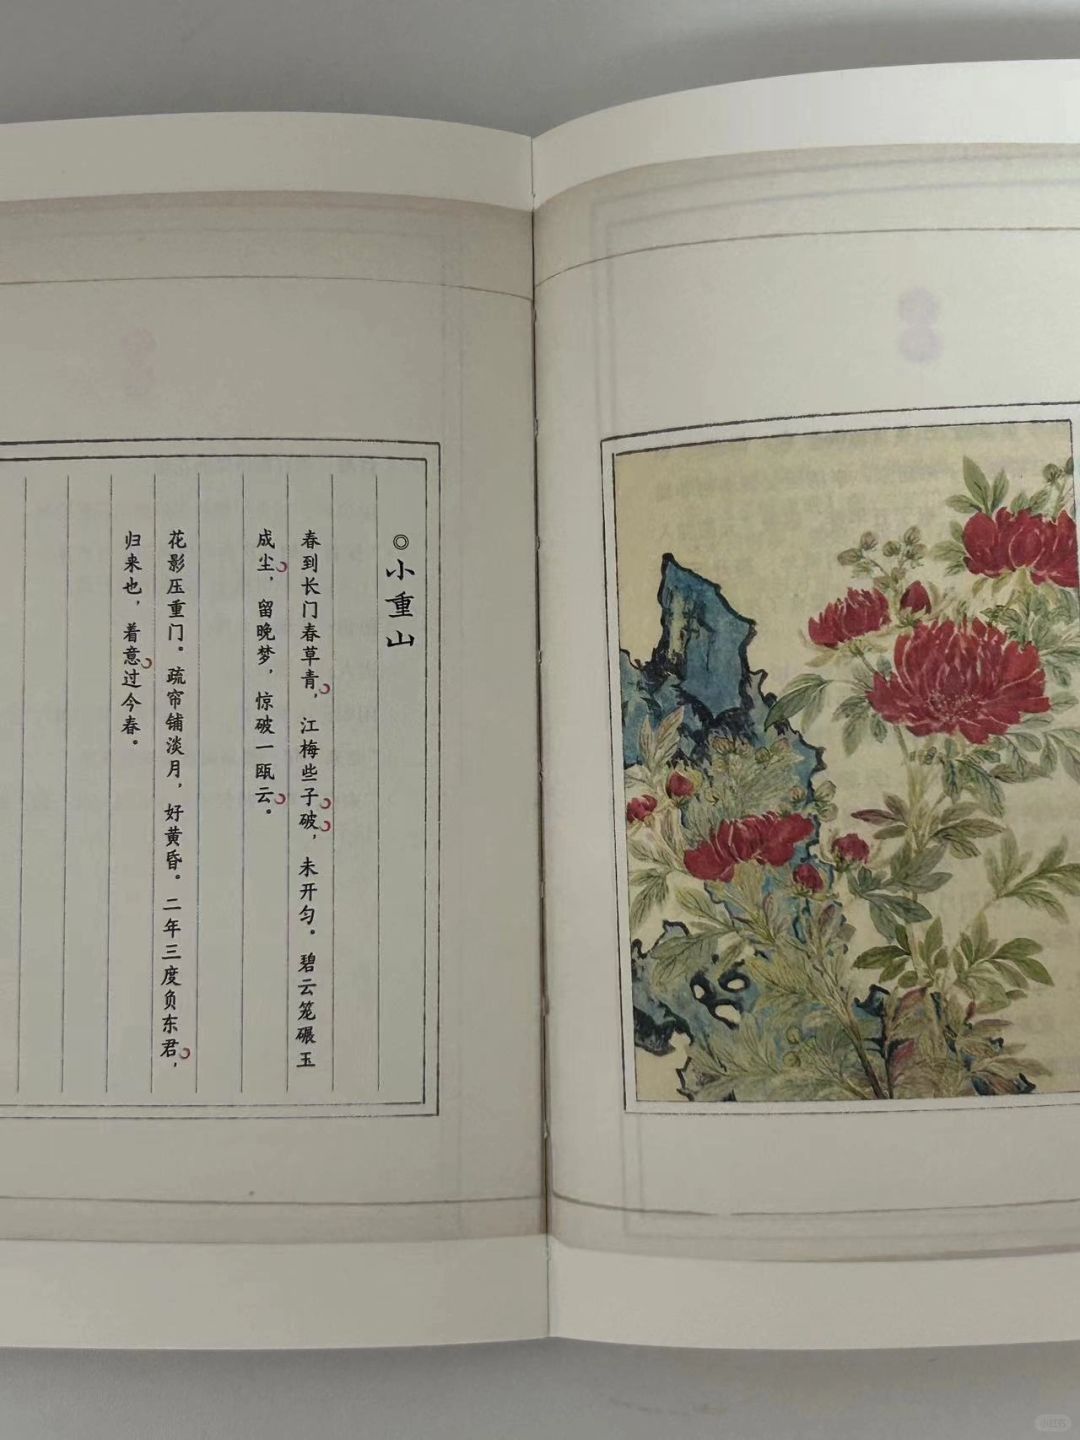 ◎小重山
春到长门春草青，江梅些子破，未开匀。碧云笼碾玉
成尘，留晚梦，惊破一瓯云。
花影压重门。疏帘铺淡月，好黄昏。二年三度负东君，
归来也，着意过今春。